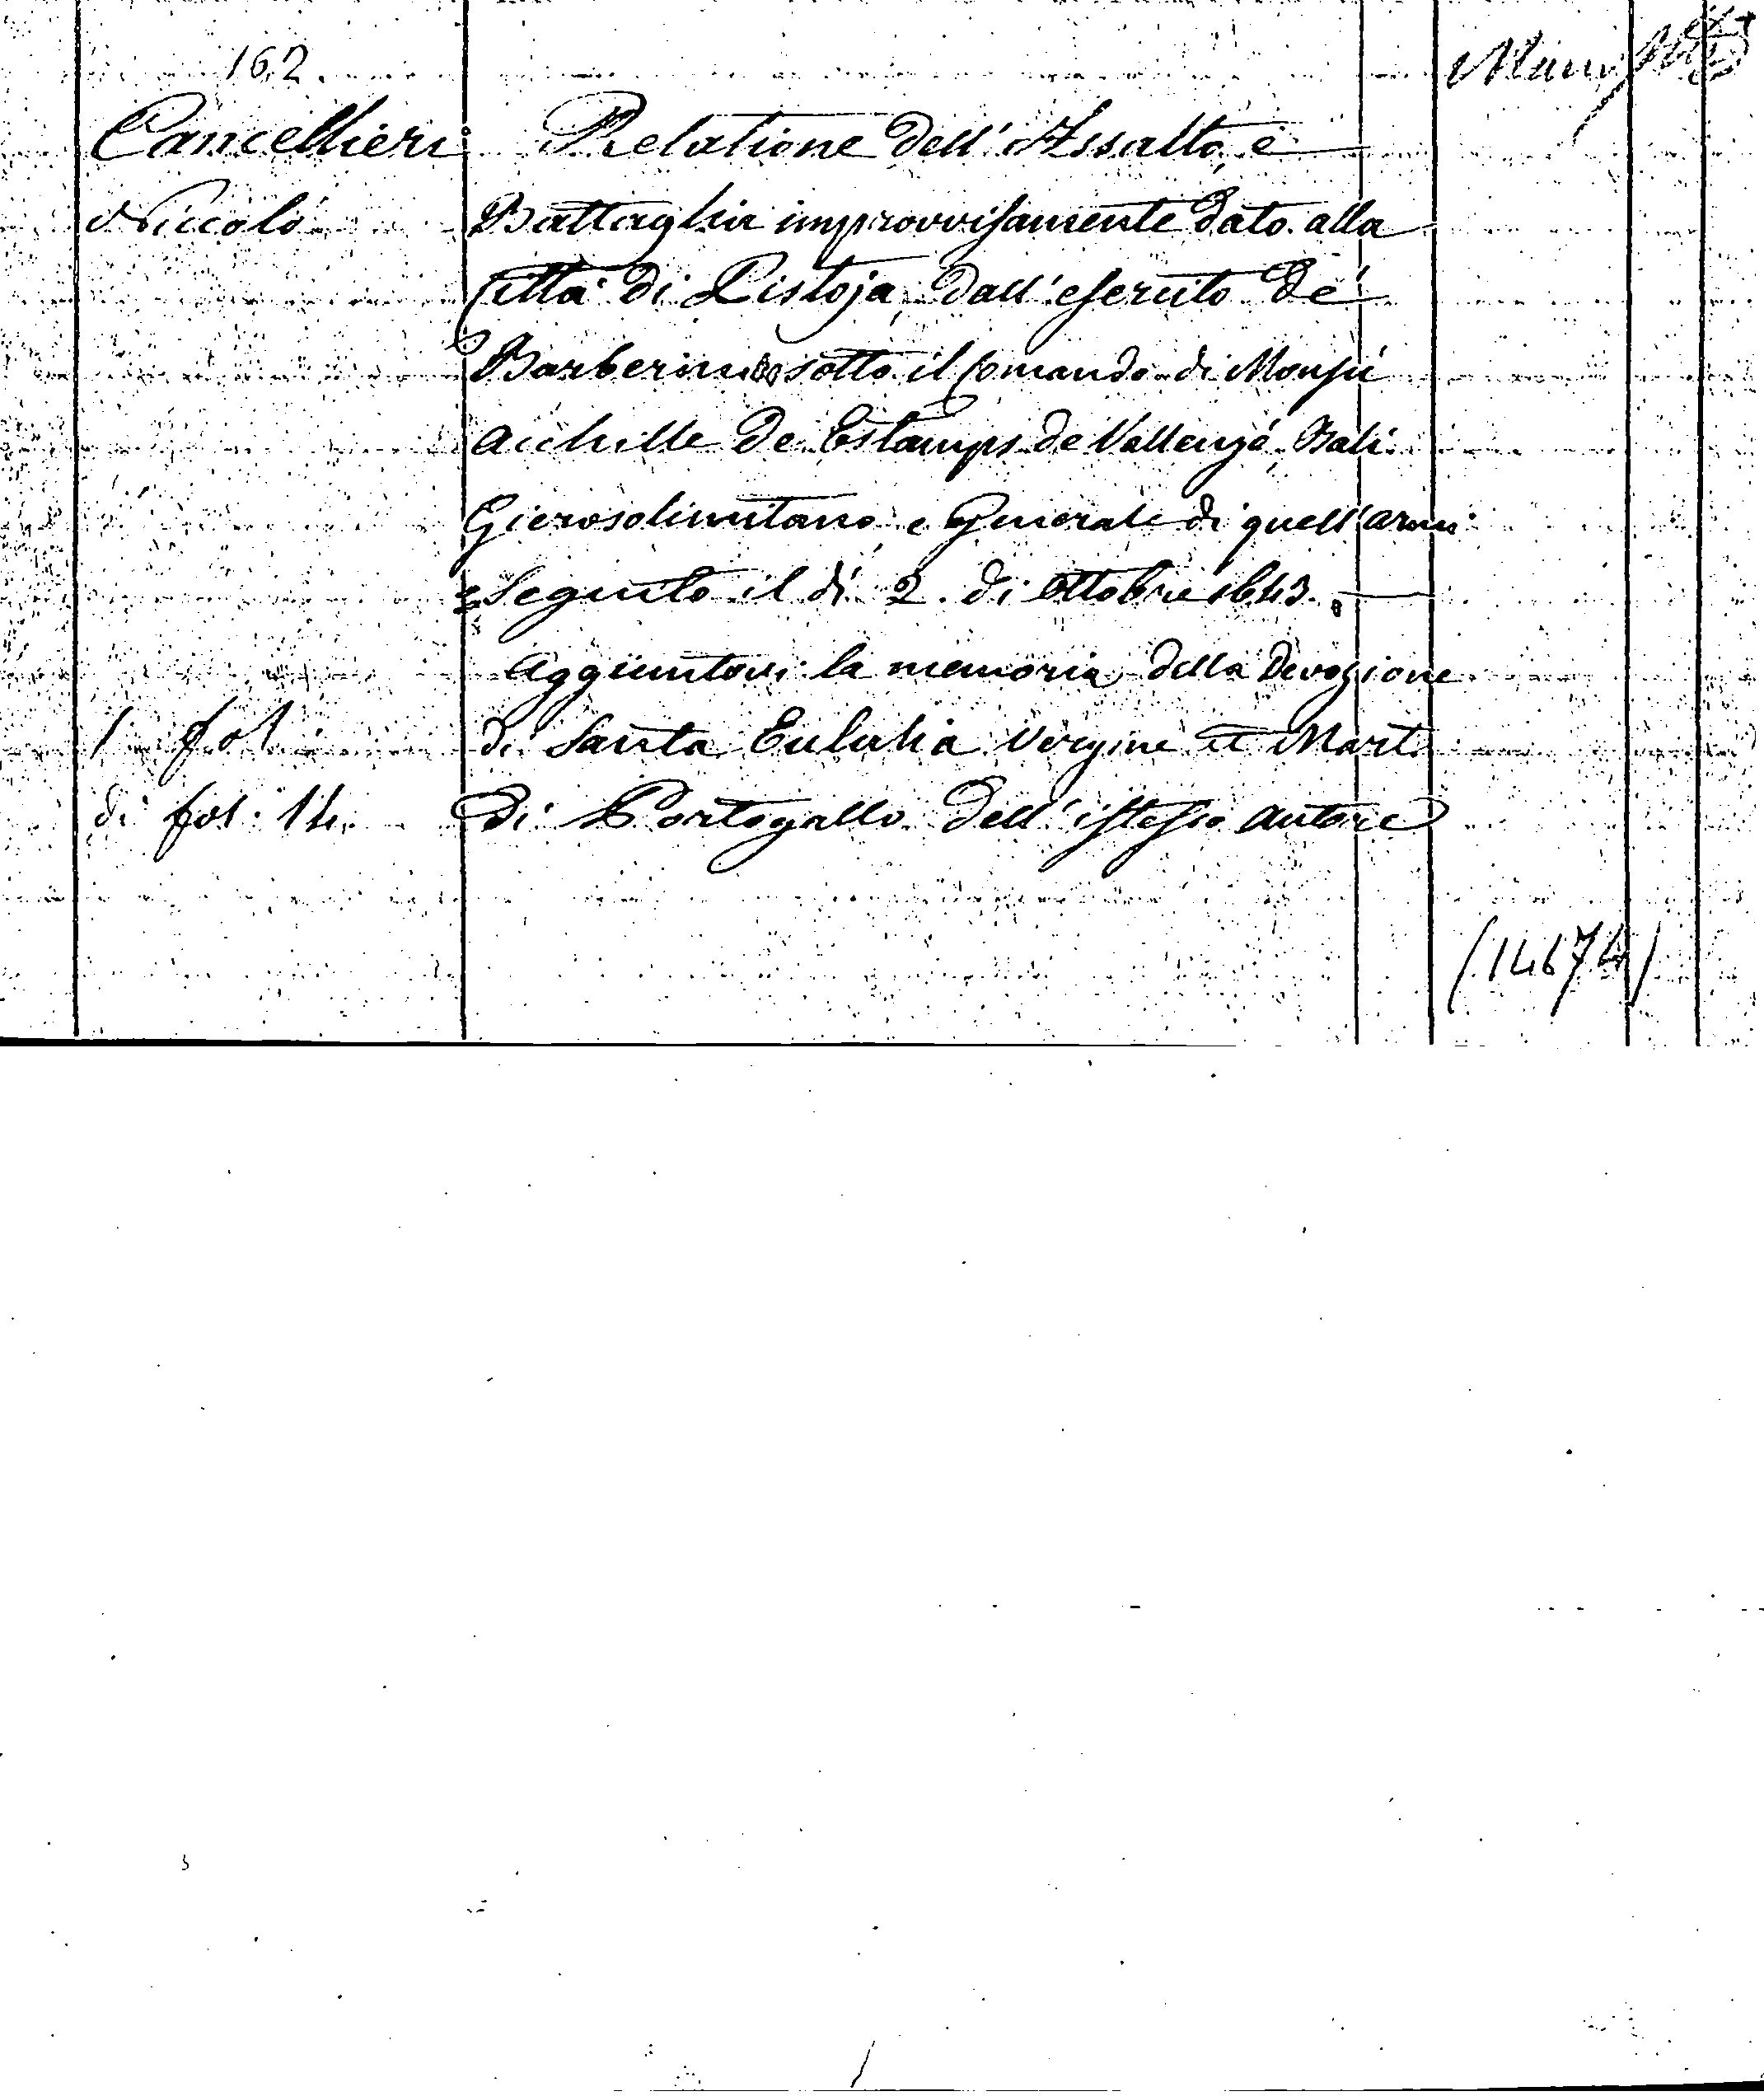 162.
Cancellieri
Niccolò
1 fol
di fol. 14.
Relatione dell' Assalto, e
Battaglia improvvisamente dato alla
Città di Pistoja, dall' esercito de'
Barberini sotto il Comando di Monsù
Acchille de Estamps de Vallenzé Balì
Gierosolimitano, e Generale di quell' armi
Seguito il dì 2. di Ottobre 1643.
Aggiuntovi la memoria della Devozione
di Santa Eulalia Vergine et Mart.
di Portogallo dell' istesso Autore
(14674)